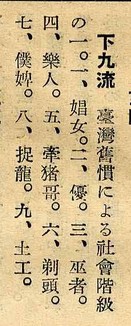 下九流 臺灣舊慣による社會階級
の一。一、娼女。二、優。三、巫者。
四、樂人。五、牽猪哥。六、剃頭。
七、僕婢。八、捉龍。九、土工。